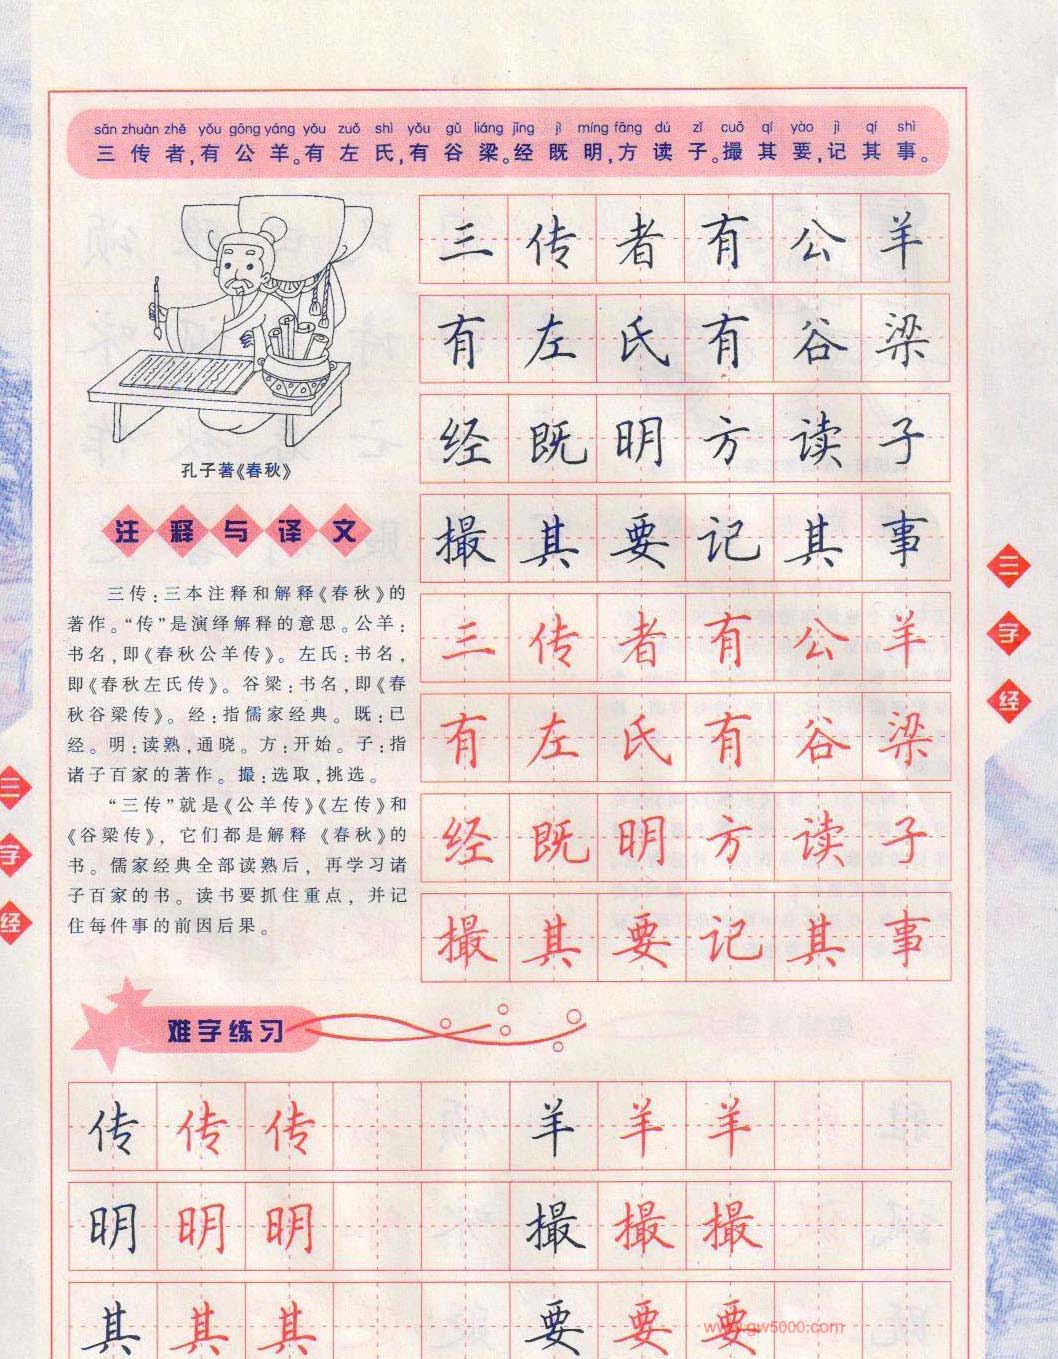 sān zhuàn zhě yǒu gōng yáng yǒu zuǒ shì yǒu gǔ liáng jīng jì míng fāng dú zǐ cuō qí yào jì qí shì
三传者,有公羊。有左氏,有谷梁。经既明,方读子。撮其要,记其事。
三传者有公羊
有左氏有谷梁
经既明方读子
撮其要记其事
三传者有公羊
有左氏有谷梁
经既明方读子
撮其要记其事
孔子著《春秋》
注释与译文
三传:三本注释和解释《春秋》的
著作。“传”是演绎解释的意思。公羊:
书名,即《春秋公羊传》。左氏:书名,
即《春秋左氏传》。谷梁:书名,即《春
秋谷梁传》。经:指儒家经典。既:已
经。明:读熟,通晓。方:开始。子:指
诸子百家的著作。撮:选取,挑选。
“三传”就是《公羊传》《左传》和
《谷梁传》,它们都是解释《春秋》的
书。儒家经典全部读熟后,再学习诸
子百家的书。读书要抓住重点,并记
住每件事的前因后果。
三字经
三字经
难字练习
传传传 羊羊羊
明明明 撮撮撮
其其其 要要要
www.gw5000.com